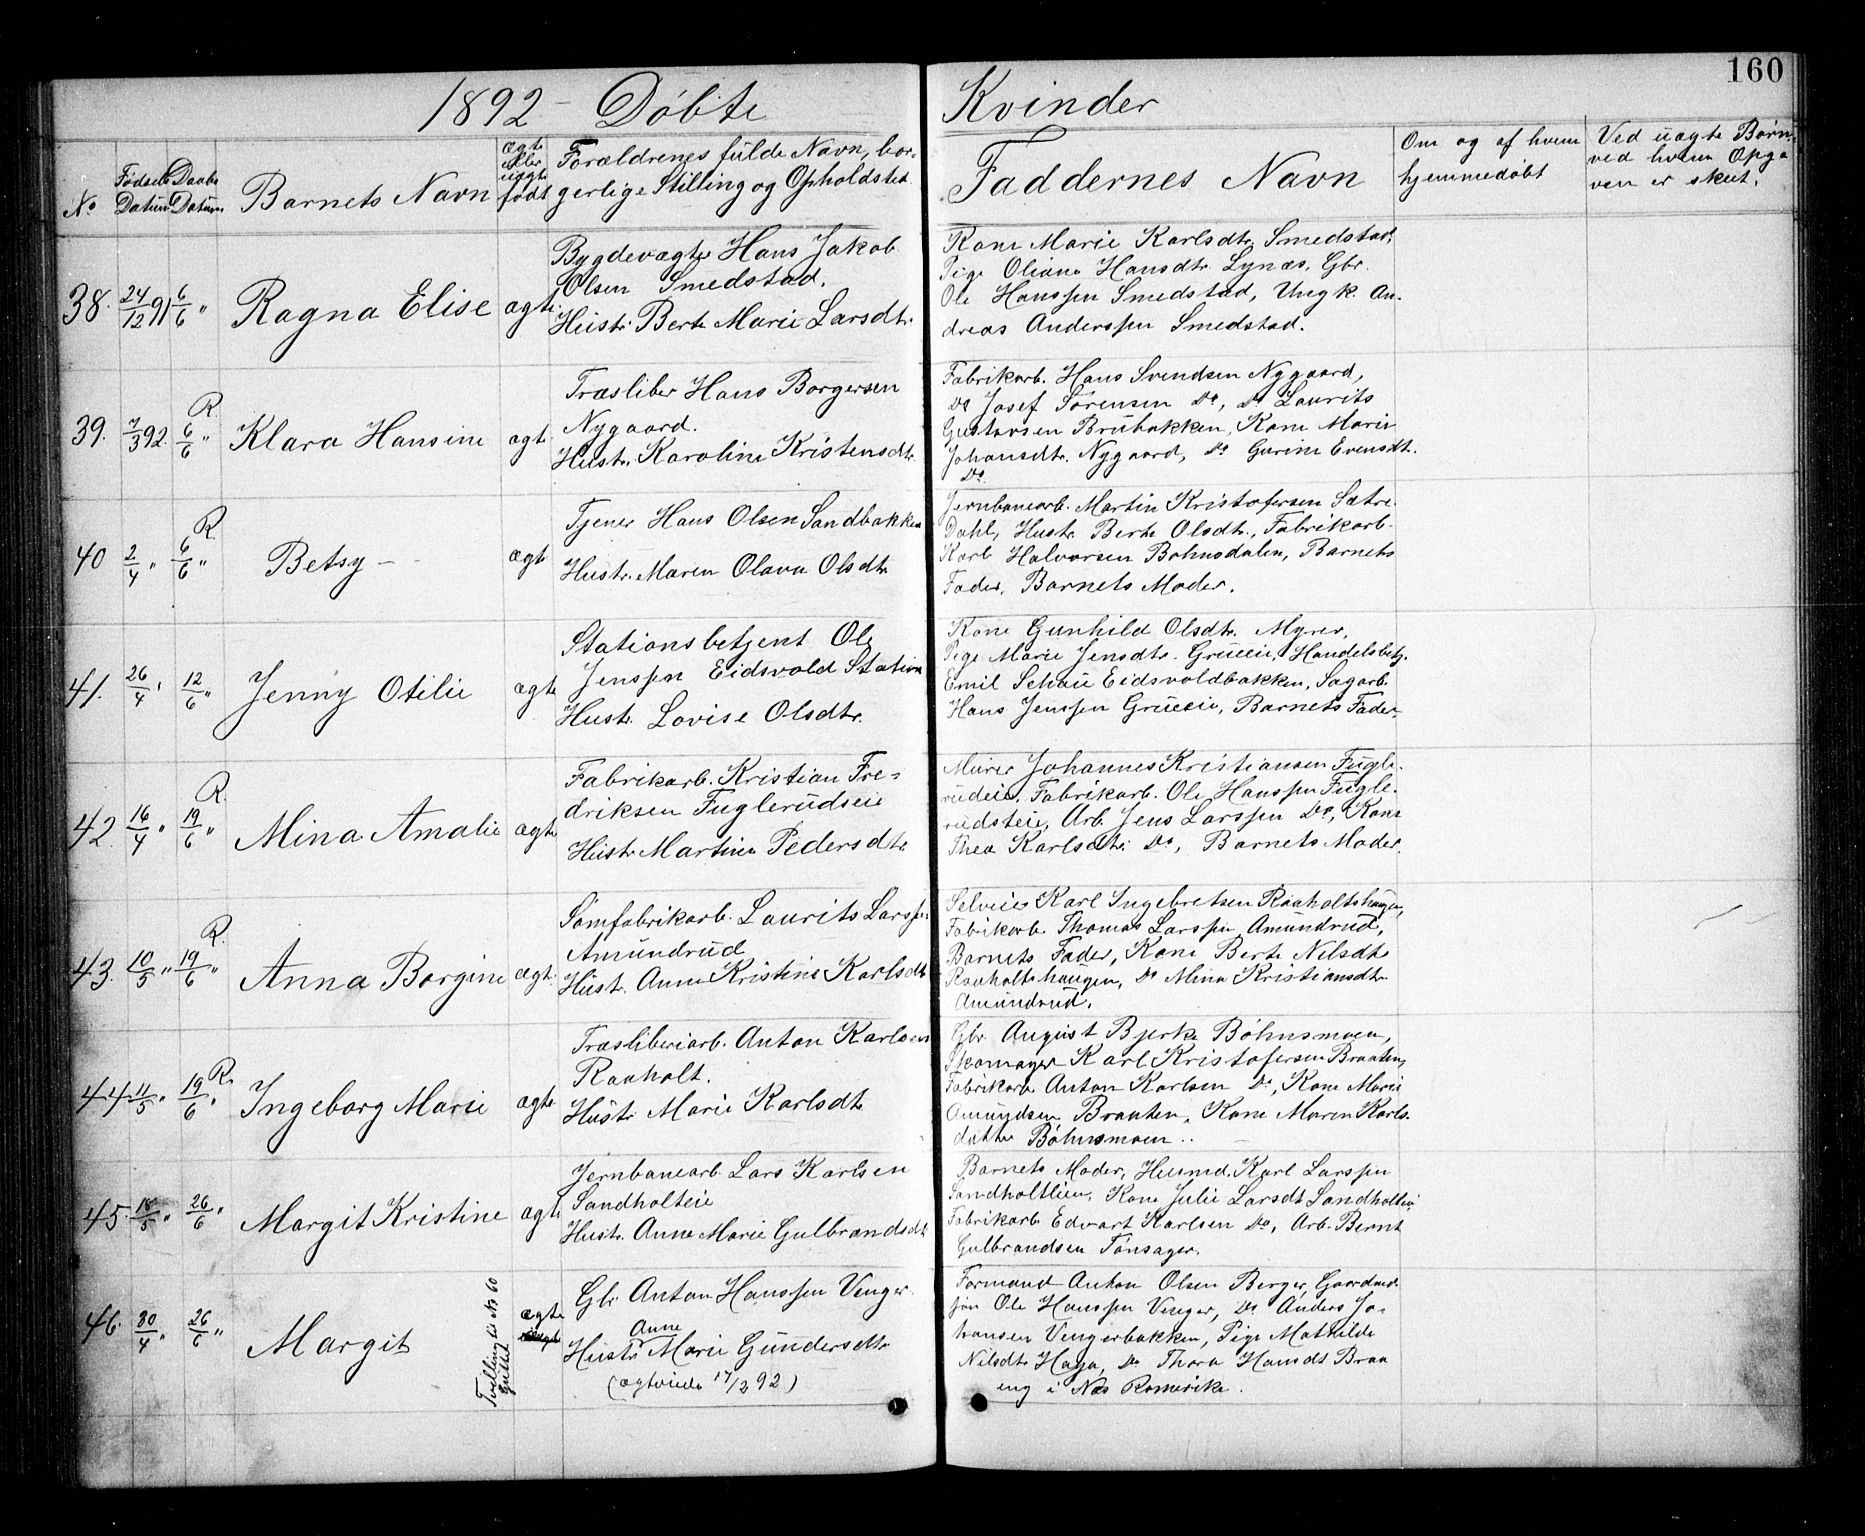 160
1892 – Döbte Kvinder
No
Fødsels Datum
Daabs Datum
Barnets Navn
Ægte eller uægte født
Forældrenes fulde Navn, bor-
gerlige Stilling og Opholdsted
Faddernes Navn
Om og af hvem
hjemmedøbt
Ved uægte Børn,
ved hvem Opga
ven er skeet.
38. 24/12 91 6/6 " Ragna Elise ægte
Bygdevægter Hans Jakob
Olsen Smedstad.
Hustr. Berte Marie Larsdtr.
Kone Marie Karlsdtr. Smedstad,
Pige Oliana Hansdtr. Lynæs, Gbr.
Ole Hanssen Smedstad, Ungk. An-
dreas Anderssen Smedstad.
39. 7/3 92. R. 6/6 " Klara Hansine ægt.
Træsliber Hans Borgersen
Nygaard.
Hustr. Karoline Kristensdtr.
Fabrikarb. Hans Svendsen Nygaard,
Do Josef Sørensen Do, Do Laurits
Gustavsen Brubakken, Kone Marie
Johansdtr. Nygaard, Do Gurine Evensdtr.
Do
40 2/4 " R. 6/6 " Betsy – ægt
Tjener Hans Olsen Sandbakken
Hustr. Maren Olava Olsdtr
Jernbanearb. Martin Kristofersen Sætre
Dahl, Hustr. Berte Olsdtr., Fabrikarb.
Karl Halvorsen Bøhnsdalen, Barnets
Fader, Barnets Moder.
41. 26/4 " 12/6 " Jenny Otilie ægte
Stationsbetjent Ole
Jenssen Eidsvold Station
Hustr. Lovise Olsdtr.
Kone Gunhild Olsdtr. Myrer,
Pige Marie Jensdtr. Grueeie, Handelsbetj.
Emil Schau Eidsvoldbakken, Sagarb.
Hans Jenssen Grueeie, Barnets Fader.
42. 16/4 " R. 19/6 " Mina Amalie ægte
Fabrikarb. Kristian Fre-
driksen Fuglerudseie
Hustr. Martine Pedersdtr
Murer Johannes Kristiansen Fugle-
rudeie, Fabrikarb. Ole Hanssen Fugle-
rudseie, Arb. Jens Larssen Do, Kone
Thea Karlsdtr. Do, Barnets Moder.
43. 10/5 " R. 19/6 " Anna Borgine ægt.
Sømfabrikarb. Laurits Larssen
Amundrud
Hustr. Anne Kristine Karlsdt
Selveier Karl Ingebretsen Raaholtshaugen,
Fabrikarb. Thomas Larssen Amundrud,
Barnets Fader, Kone Berte Nilsdtr
Raaholtshaugen, Do Mina Kristiansdtr
Amundrud.
44. 11/5 " R. 19/6 " Ingeborg Marie ægte
Træsliberiarb. Anton Karlsen
Raaholt.
Hustr Marie Karlsdtr
Gbr August Bjerke Bøhnsmoen,
Skomager Karl Kristofersen Braaten,
Fabrikarb Anton Karlsen Do, Kone Marie
Amundsen Braaten, Kone Maren Karls-
datter Bøhnsmoen..
45. 18/5 " 26/6 " Margit Kristine ægt.
Jernbanearb. Lars Karlsen
Sandholteie
Hustr. Anne Marie Gulbrandsdt
Barnets Moder, Husmd. Karl Larssen
Sandholtlien, Kone Julie Larsdt Sandholteie
Fabrikarb Edvart Karlsen Do, Arb. Bernt
Gulbrandsen Tønsager.
46. 30/4 " 26/6 " Margit ægte
Tvilling til No 60
Guttet
Gbr. Anton Hanssen Venger.
Anne
Hustr Marie Gundersdtr
(ægtviede 17/2 92)
Formand Anton Olsen Berger, Gaardmd-
søn Ole Hanssen Venger, Do Anders Jo-
hansen Vengerbakken, Pige Mathilde
Nilsdtr Haga, Do Thora Hansdt Braa
eng i Næs Romerike.